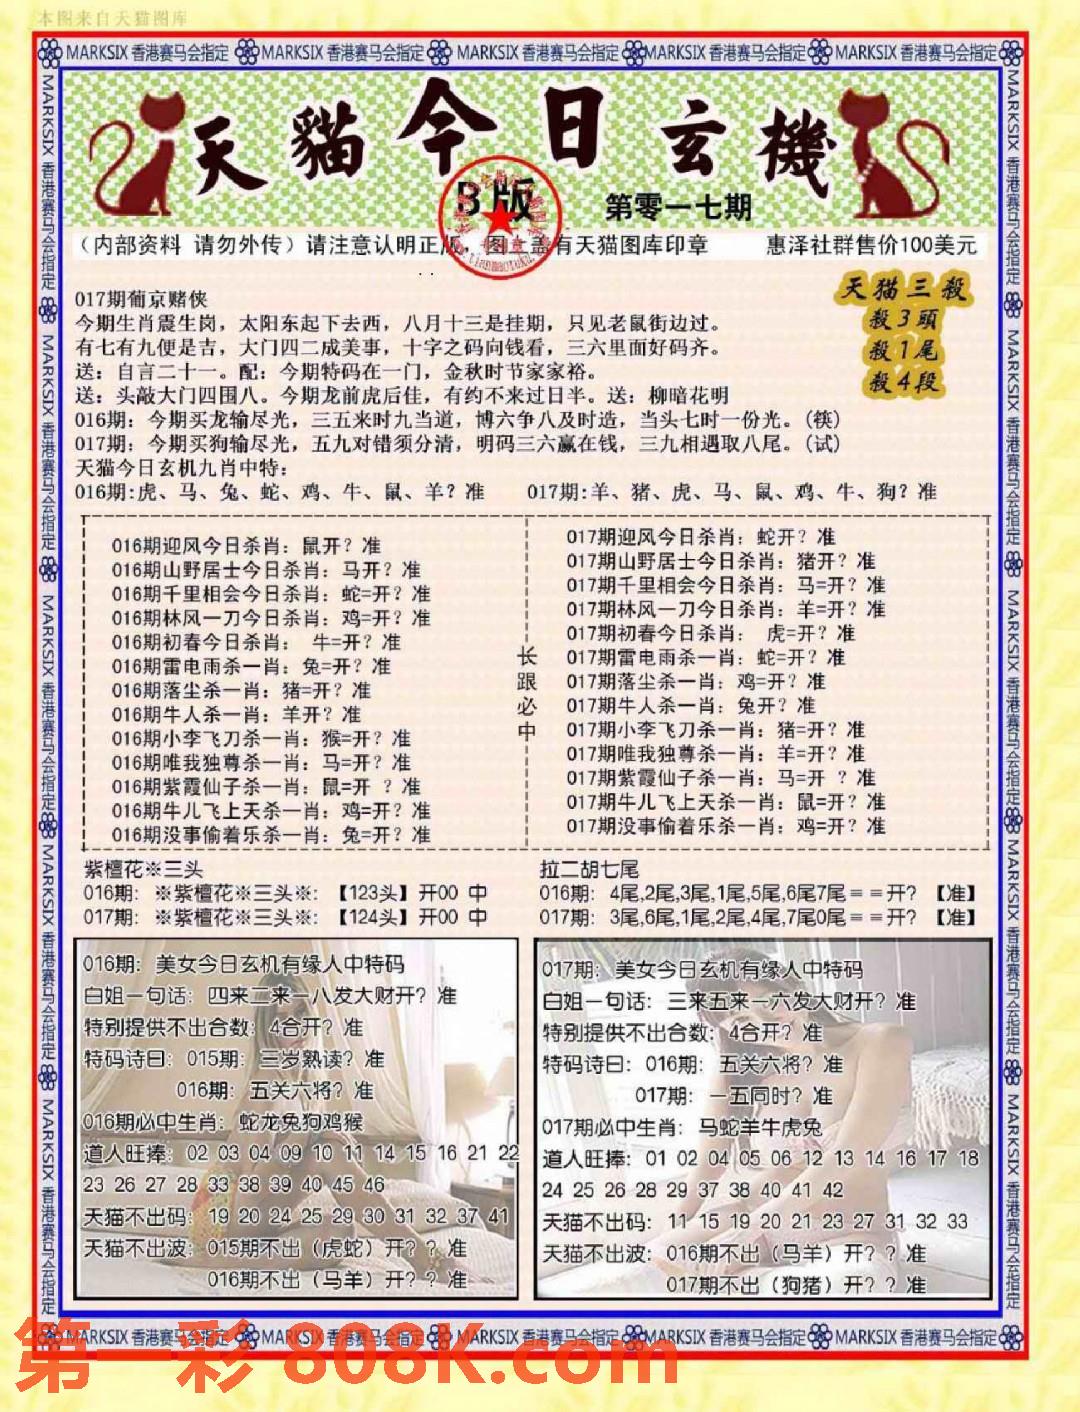 本图来自天猫图库
MARKSIX 香港赛马会指定 MARKSIX 香港赛马会指定 MARKSIX 香港赛马会指定 MARKSIX 香港赛马会指定 MARKSIX 香港赛马会指定
天貓今日玄機
B版
第零一七期
（内部资料 请勿外传）请注意认明正版，图上盖有天猫图库印章 惠泽社群售价100美元
天猫三殺
殺3頭
殺1尾
殺4段
017期葡京赌侠
今期生肖震生岗，太阳东起下去西，八月十三是挂期，只见老鼠街边过。
有七有九便是吉，大门四二成美事，十字之码向钱看，三六里面好码齐。
送：自言二十一。配：今期特码在一门，金秋时节家家裕。
送：头敲大门四围八。今期龙前虎后佳，有约不来过日半。送：柳暗花明
016期：今期买龙输尽光，三五来时九当道，博六争八及时造，当头七时一份光。(筷)
017期：今期买狗输尽光，五九对错须分清，明码三六赢在钱，三九相遇取八尾。(试)
天猫今日玄机九肖中特：
016期:虎、马、兔、蛇、鸡、牛、鼠、羊？准 017期:羊、猪、虎、马、鼠、鸡、牛、狗？准
016期迎风今日杀肖：鼠开？准
016期山野居士今日杀肖：马开？准
016期千里相会今日杀肖：蛇=开？准
016期林风一刀今日杀肖：鸡=开？准
016期初春今日杀肖： 牛=开？准
016期雷电雨杀一肖：兔=开？准
016期落尘杀一肖：猪=开？准
016期牛人杀一肖：羊开？准
016期小李飞刀杀一肖：猴=开？准
016期唯我独尊杀一肖：马=开？准
016期紫霞仙子杀一肖：鼠=开 ？准
016期牛儿飞上天杀一肖：鸡=开？准
016期没事偷着乐杀一肖：兔=开？准
长跟必中
017期迎风今日杀肖：蛇开？准
017期山野居士今日杀肖：猪开？准
017期千里相会今日杀肖：马=开？准
017期林风一刀今日杀肖：羊=开？准
017期初春今日杀肖： 虎=开？准
017期雷电雨杀一肖：蛇=开？准
017期落尘杀一肖：鸡=开？准
017期牛人杀一肖：兔开？准
017期小李飞刀杀一肖：猪=开？准
017期唯我独尊杀一肖：羊=开？准
017期紫霞仙子杀一肖：马=开 ？准
017期牛儿飞上天杀一肖：鼠=开？准
017期没事偷着乐杀一肖：鸡=开？准
紫檀花※三头
016期：※紫檀花※三头※：【123头】开00 中
017期：※紫檀花※三头※：【124头】开00 中
拉二胡七尾
016期：4尾,2尾,3尾,1尾,5尾,6尾7尾＝＝开？【准】
017期：3尾,6尾,1尾,2尾,4尾,7尾0尾＝＝开？【准】
016期：美女今日玄机有缘人中特码
白姐一句话：四来二来一八发大财开？准
特别提供不出合数：4合开？准
特码诗曰：015期：三岁熟读？准
016期：五关六将？准
016期必中生肖：蛇龙兔狗鸡猴
道人旺捧：02 03 04 09 10 11 14 15 16 21 22
23 26 27 28 33 38 39 40 45 46
天猫不出码：19 20 24 25 29 30 31 32 37 41
天猫不出波：015期不出（虎蛇）开？？准
016期不出（马羊）开？？准
017期：美女今日玄机有缘人中特码
白姐一句话：三来五来一六发大财开？准
特别提供不出合数：4合开？准
特码诗曰：016期：五关六将？准
017期：一五同时？准
017期必中生肖：马蛇羊牛虎兔
道人旺捧：01 02 04 05 06 12 13 14 16 17 18
24 25 26 28 29 37 38 40 41 42
天猫不出码：11 15 19 20 21 23 27 31 32 33
天猫不出波：016期不出（马羊）开？？准
017期不出（狗猪）开？？准
MARKSIX 香港赛马会指定 MARKSIX 香港赛马会指定 MARKSIX 香港赛马会指定 MARKSIX 香港赛马会指定 MARKSIX 香港赛马会指定
MARKSIX 香港赛马会指定 MARKSIX 香港赛马会指定 MARKSIX 香港赛马会指定 MARKSIX 香港赛马会指定 MARKSIX 香港赛马会指定
MARKSIX 香港赛马会指定 MARKSIX 香港赛马会指定 MARKSIX 香港赛马会指定 MARKSIX 香港赛马会指定 MARKSIX 香港赛马会指定
第一彩 808K.com